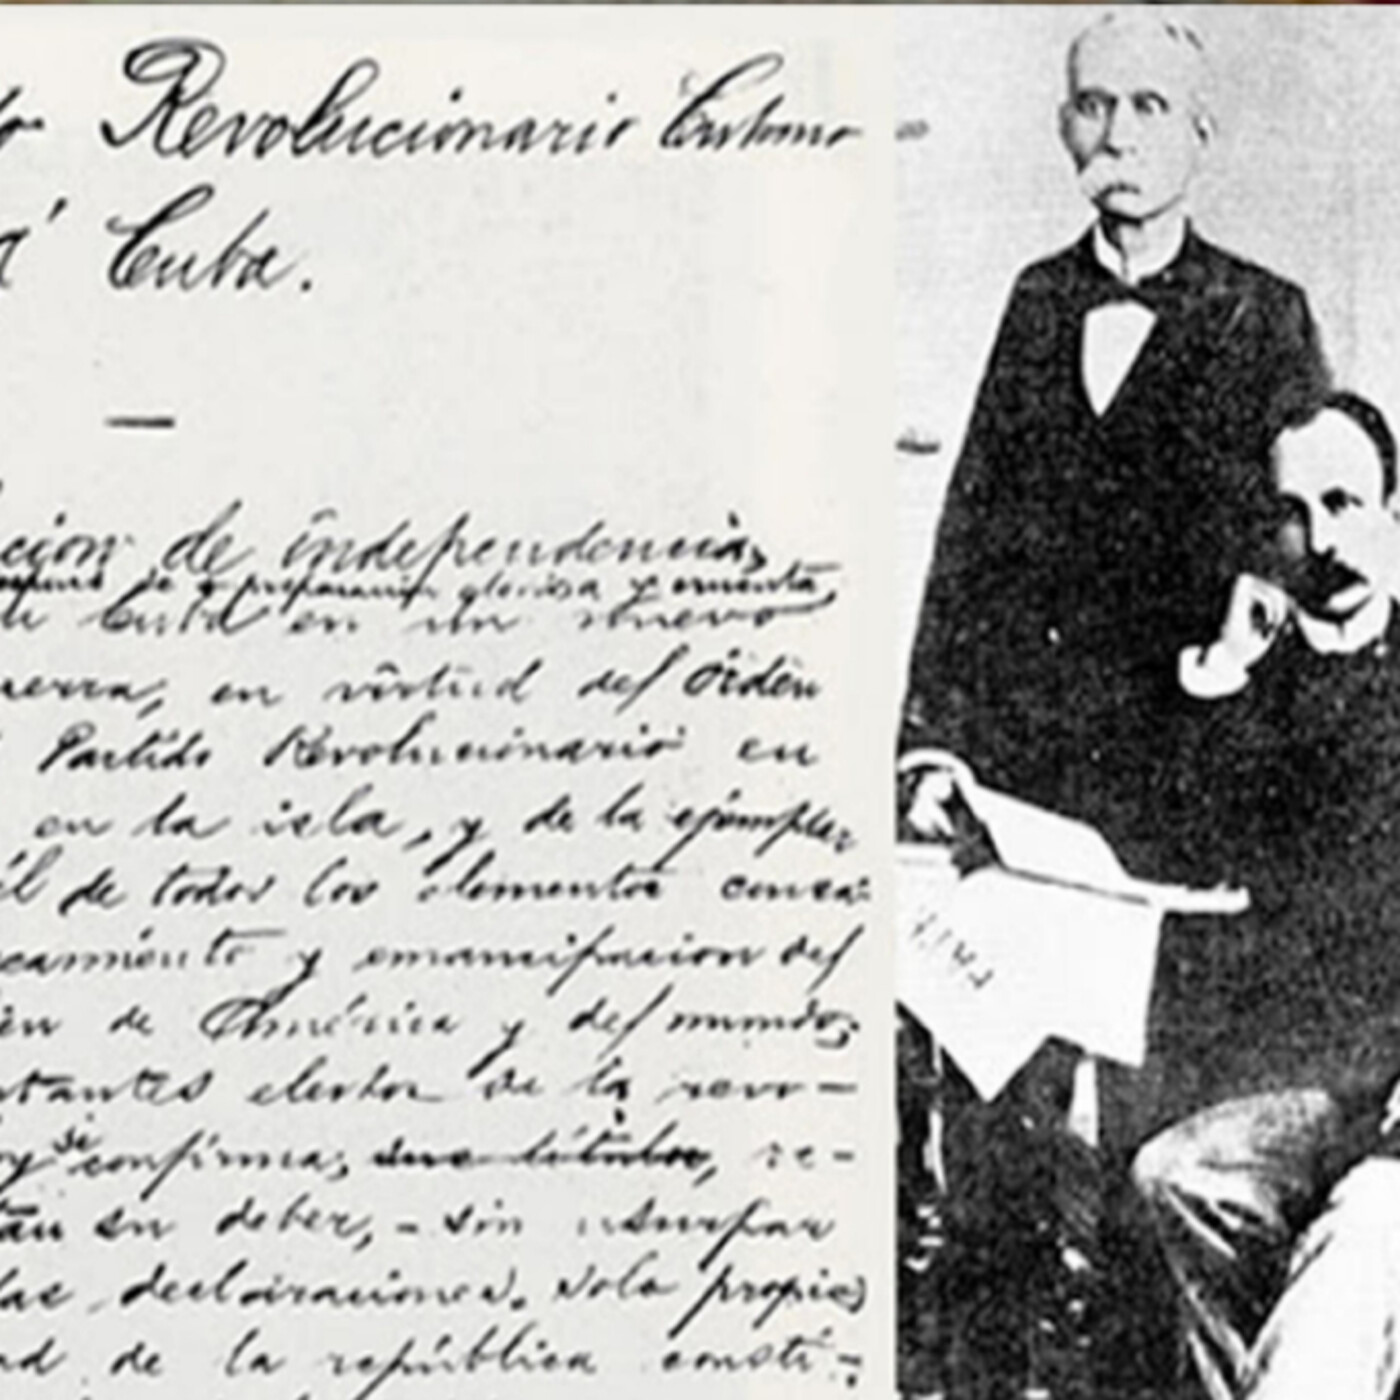 o Revolucionario Cubano
á Cuba.
—
cion de independencia,
de preparacion gloriosa y cruenta,
de Cuba en un nuevo
uerra, en virtud del órden
Partido Revolucionario en
en la isla, y de la ejemplar
él de todos los elementos consa-
camiento y emancipacion del
ien de América y del mundo,
ntantes electos de la revo-
oy se confirma, sus títulos, re-
tan su deber, – sin usurpar
las declaraciones, solo propias
ad de la república consti-
PATRIA